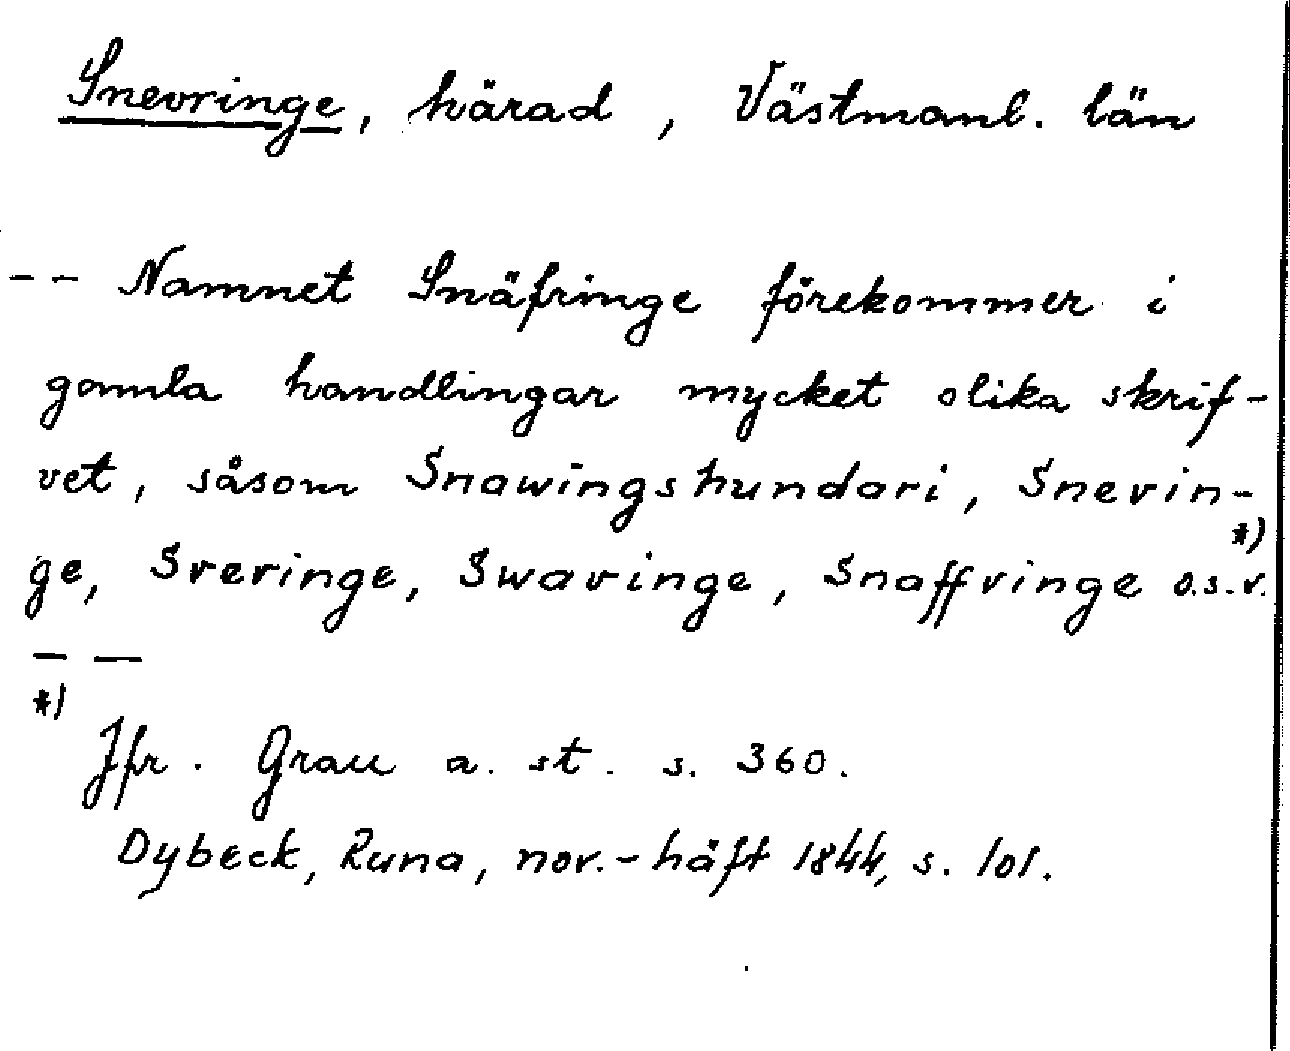 Snevringe, härad, Västmanl. län
-- Namnet Snäfringe förekommer i
gamla handlingar mycket olika skrif-
vet, såsom Snawingshundari, Snevin-
ge, Sveringe, Swavinge, Snaffvinge o.s.v. *)
— —
*)
Jfr. Grau a. st. s. 360.
Dybeck, Runa, nov.-häft 1844, s. 101.